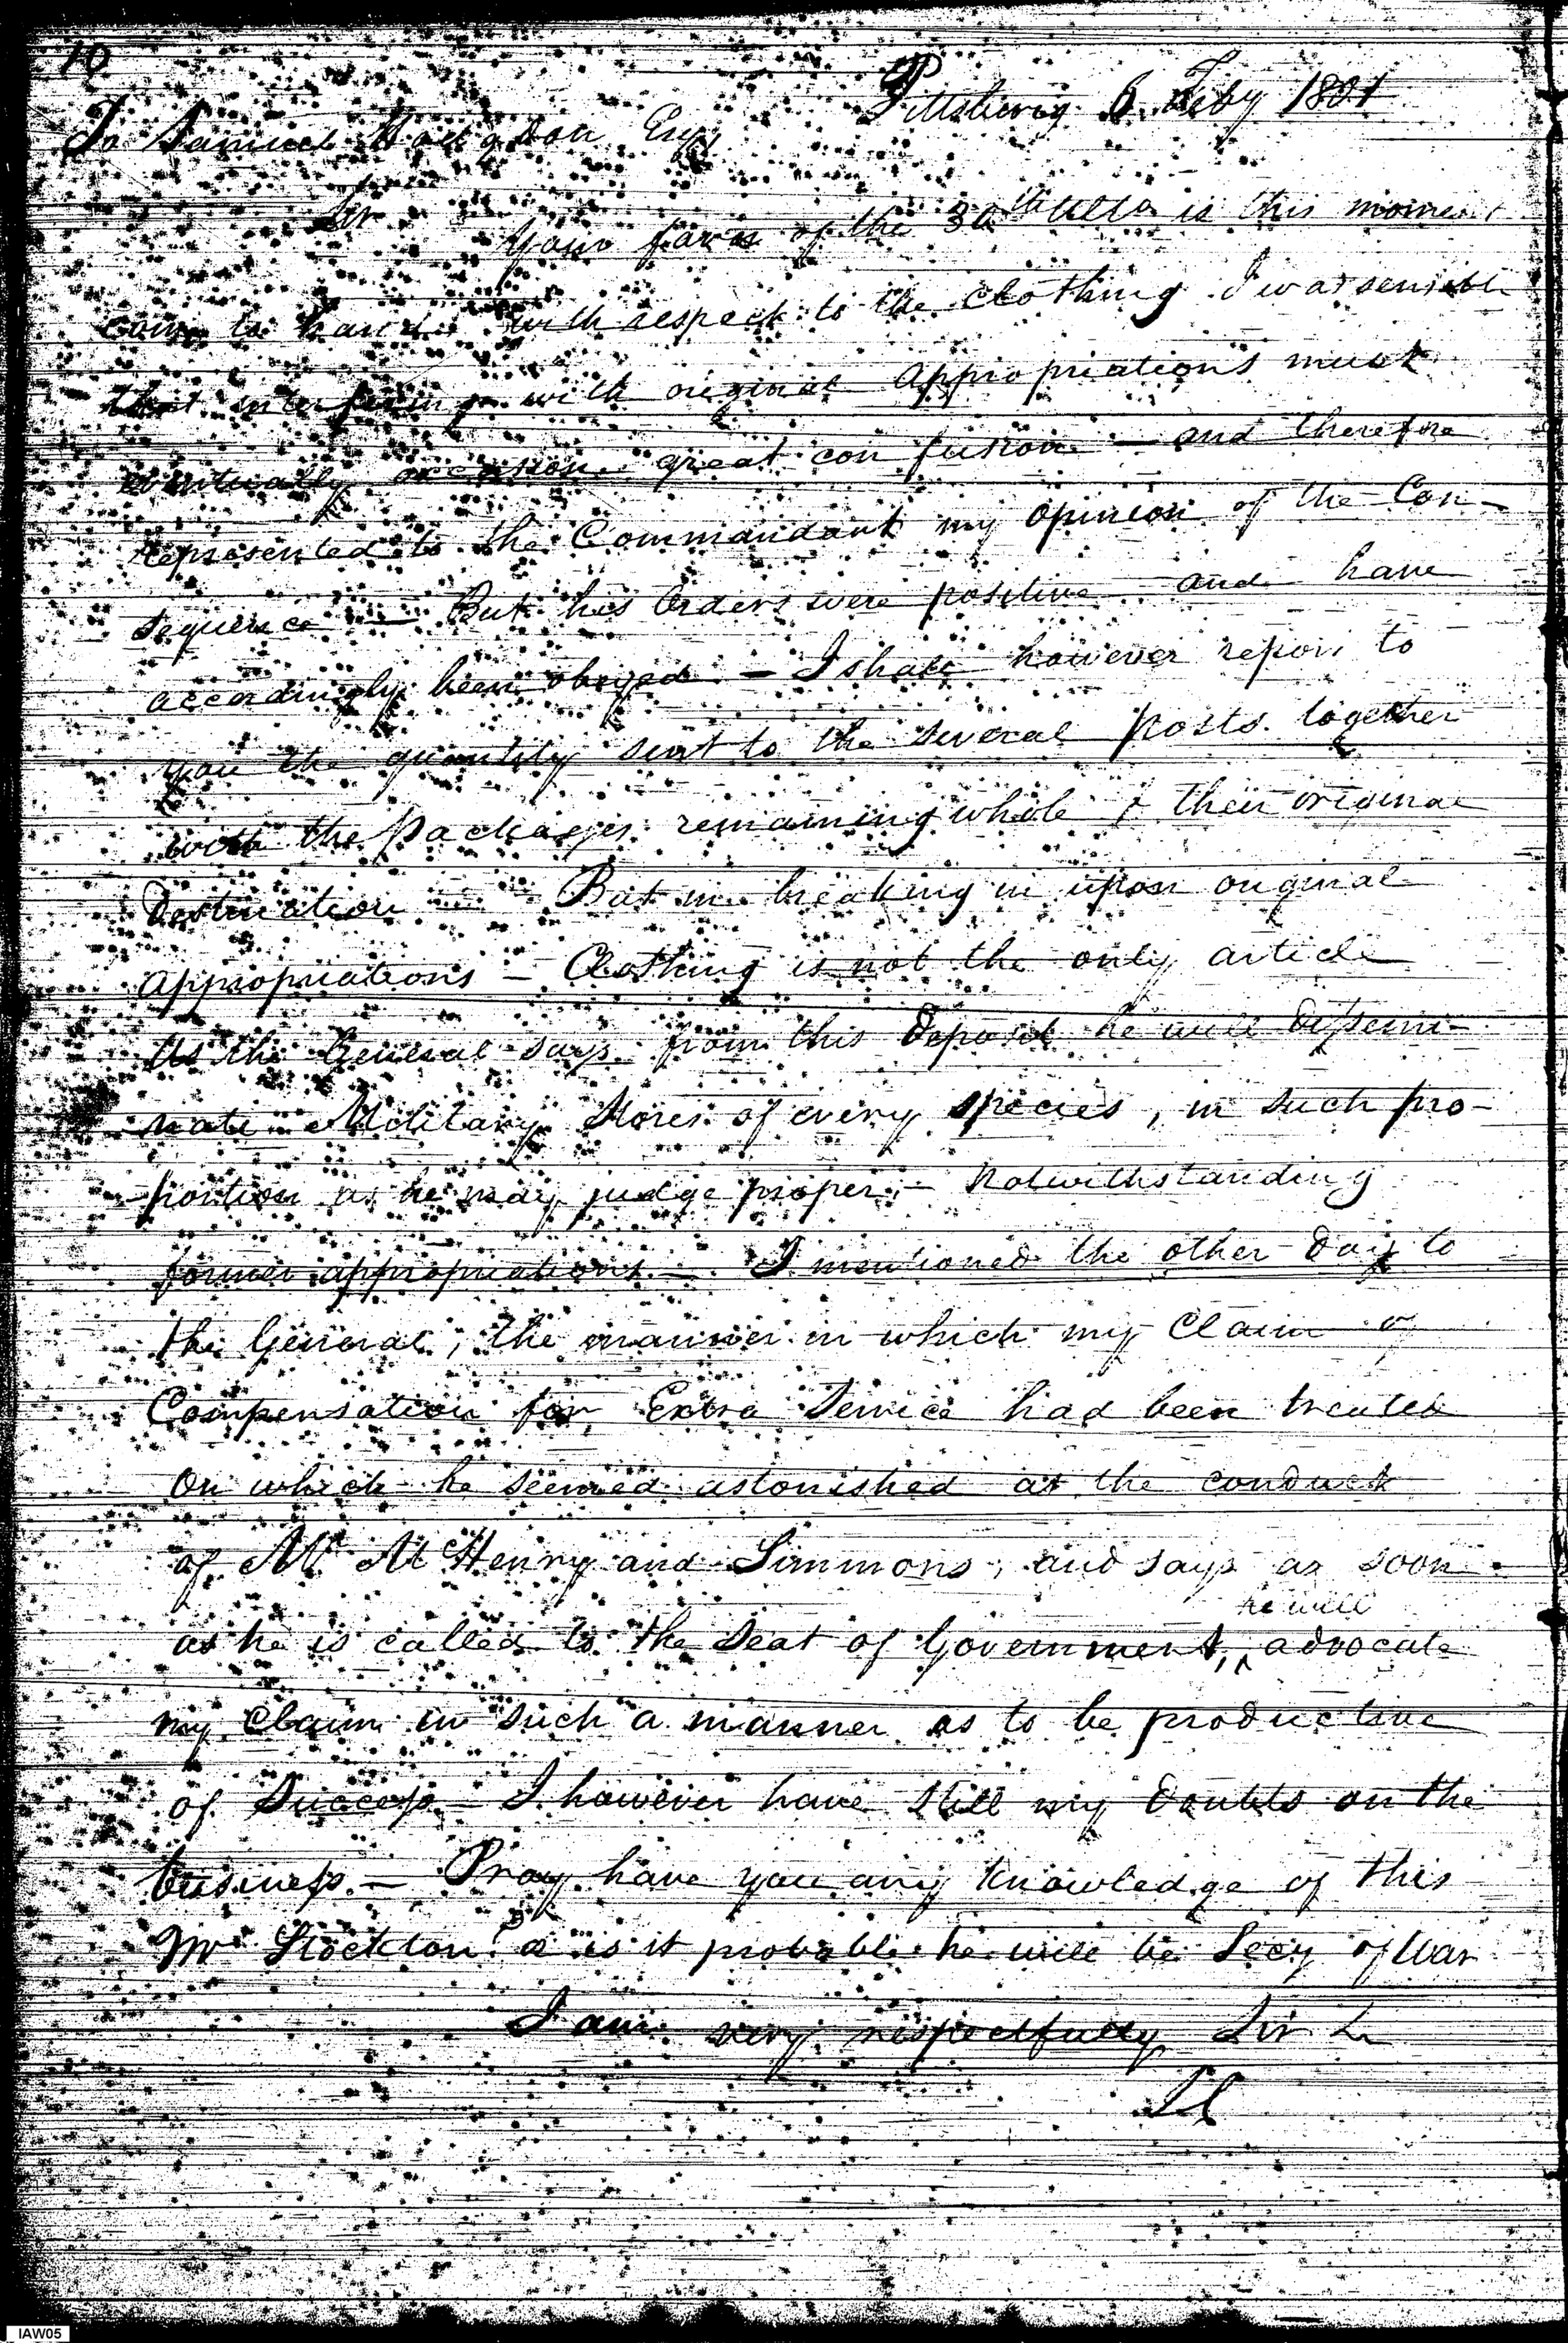 10
Pittsburg 6 Feby 1801
To Samuel Hodgdon Esqr
Sir
Your favor of the 30th Ulto is this moment
come to hand with respect to the Clothing I was sensible
that interfering with original appropriations must
eventually occasion great confusion — and therefore
represented to the Commandant my opinion of the Con-
sequence — But his Orders were positive and have
accordingly been obeyed — I shall however report to
you the quantity sent to the several posts together
with the packages remaining whole & their original
Destination — But in breaking in upon original
appropriations — Clothing is not the only article
As the General says from this Deposit he will Dissemi-
nate Military Stores of every species, in such pro-
portion as he may judge proper, — Notwithstanding
former appropriations — I mentioned the other Day to
the General, the manner in which my Claim of
Compensation for Extra Service had been treated
On which he seemed astonished at the conduct
of Mr McHenry and Simmons, and says as soon
as he is called to the Seat of Government, he will advocate
my Claim in such a manner as to be productive
of Success — I however have still my Doubts on the
business — Pray have you any knowledge of this
Mr Stockton? & is it probable he will be Secy of War
I am very respectfully Sir
IAW05